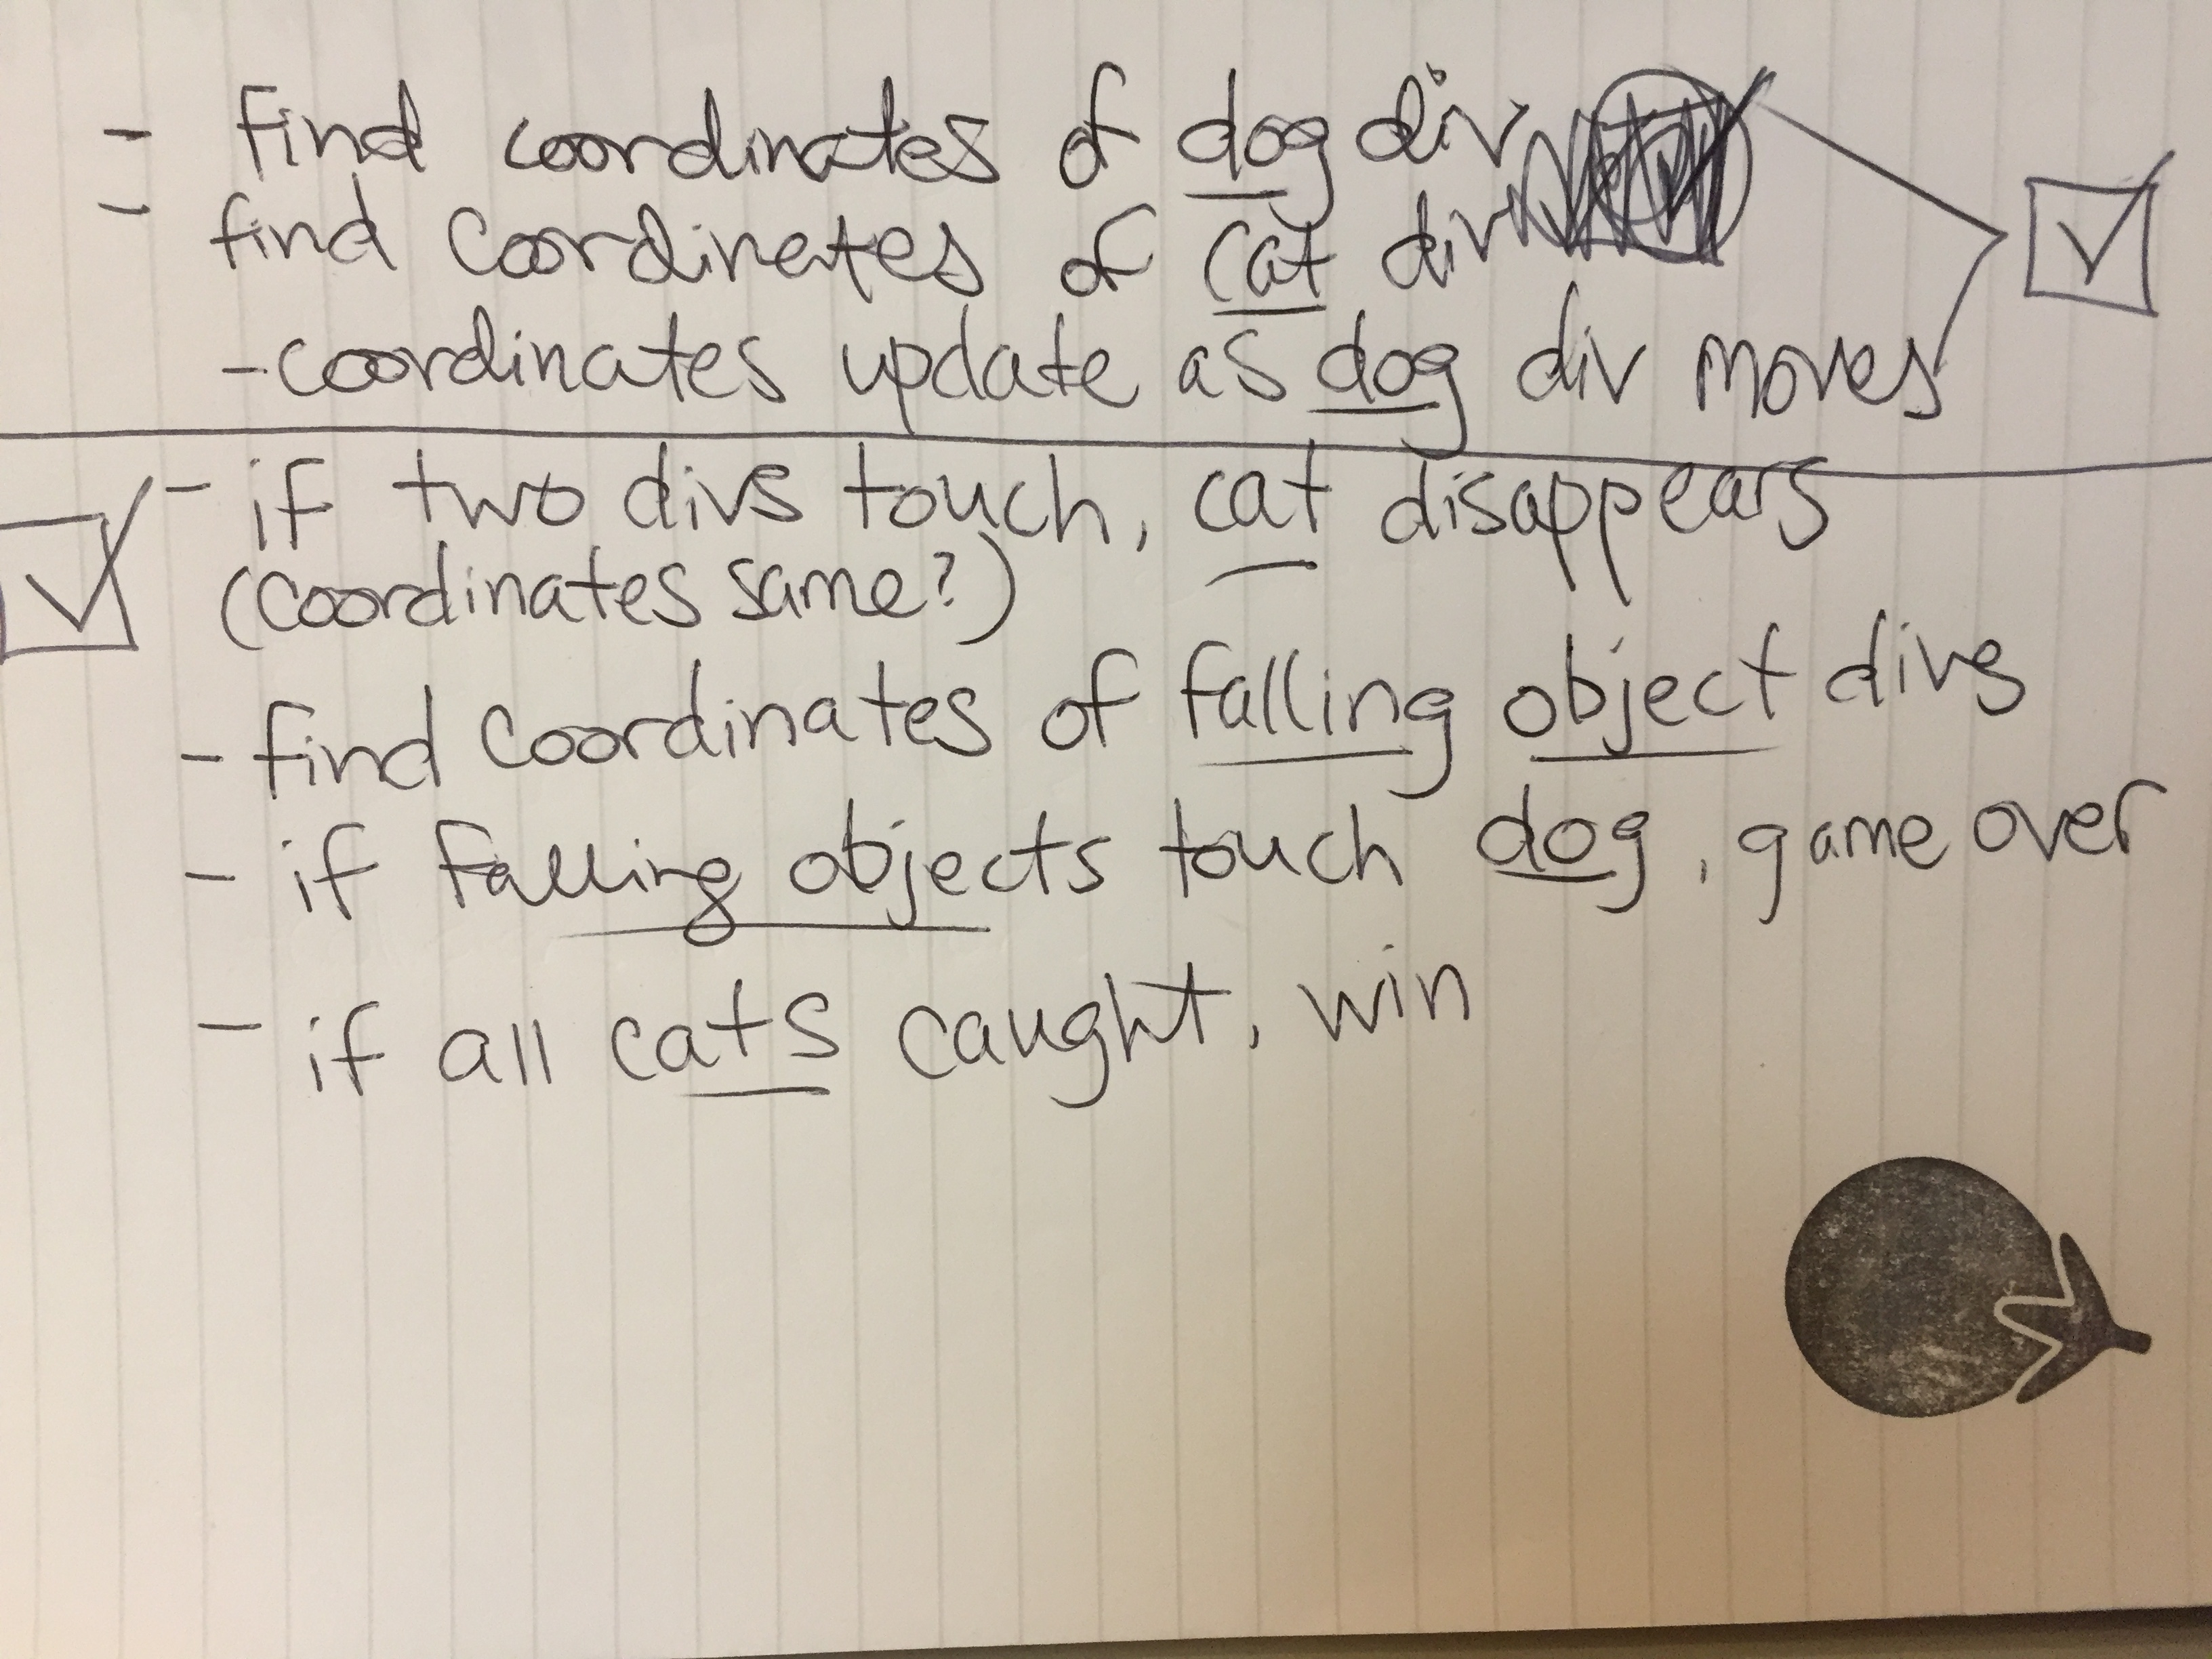 - find coordinates of dog div
- find coordinates of cat div
- coordinates update as dog div moves
- if two divs touch, cat disappears
(coordinates same?)
- find coordinates of falling object divs
- if falling objects touch dog, game over
- if all cats caught, win